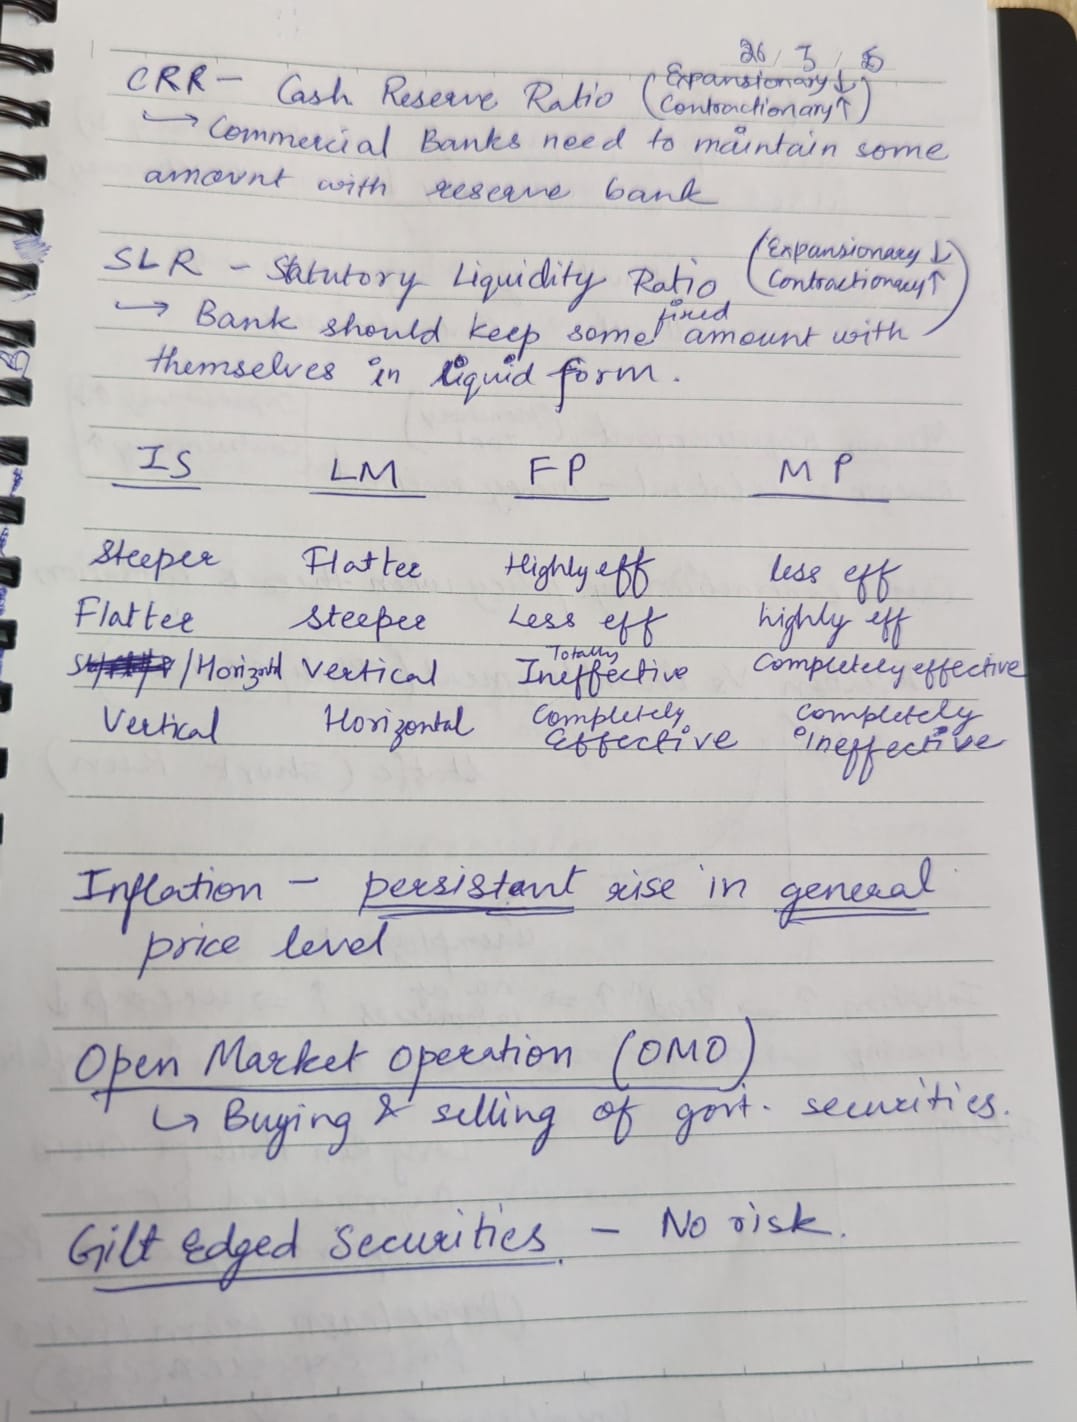 26/3/5
CRR - Cash Reserve Ratio (Expansionary↓
Contractionary↑)
→ Commercial Banks need to maintain some
amount with reserve bank
SLR - Statutory Liquidity Ratio (Expansionary ↓
Contractionary↑)
→ Bank should keep some fixed amount with
themselves in liquid form.
IS LM FP MP
Steeper Flatter Highly eff less eff
Flatter Steeper Less eff highly eff
/Horizontal Vertical Totally Ineffective Completely effective
Vertical Horizontal Completely Effective Completely ineffective
Inflation - persistant rise in general
price level
Open Market Operation (OMO)
↳ Buying & selling of govt. securities.
Gilt Edged Securities. - No risk.